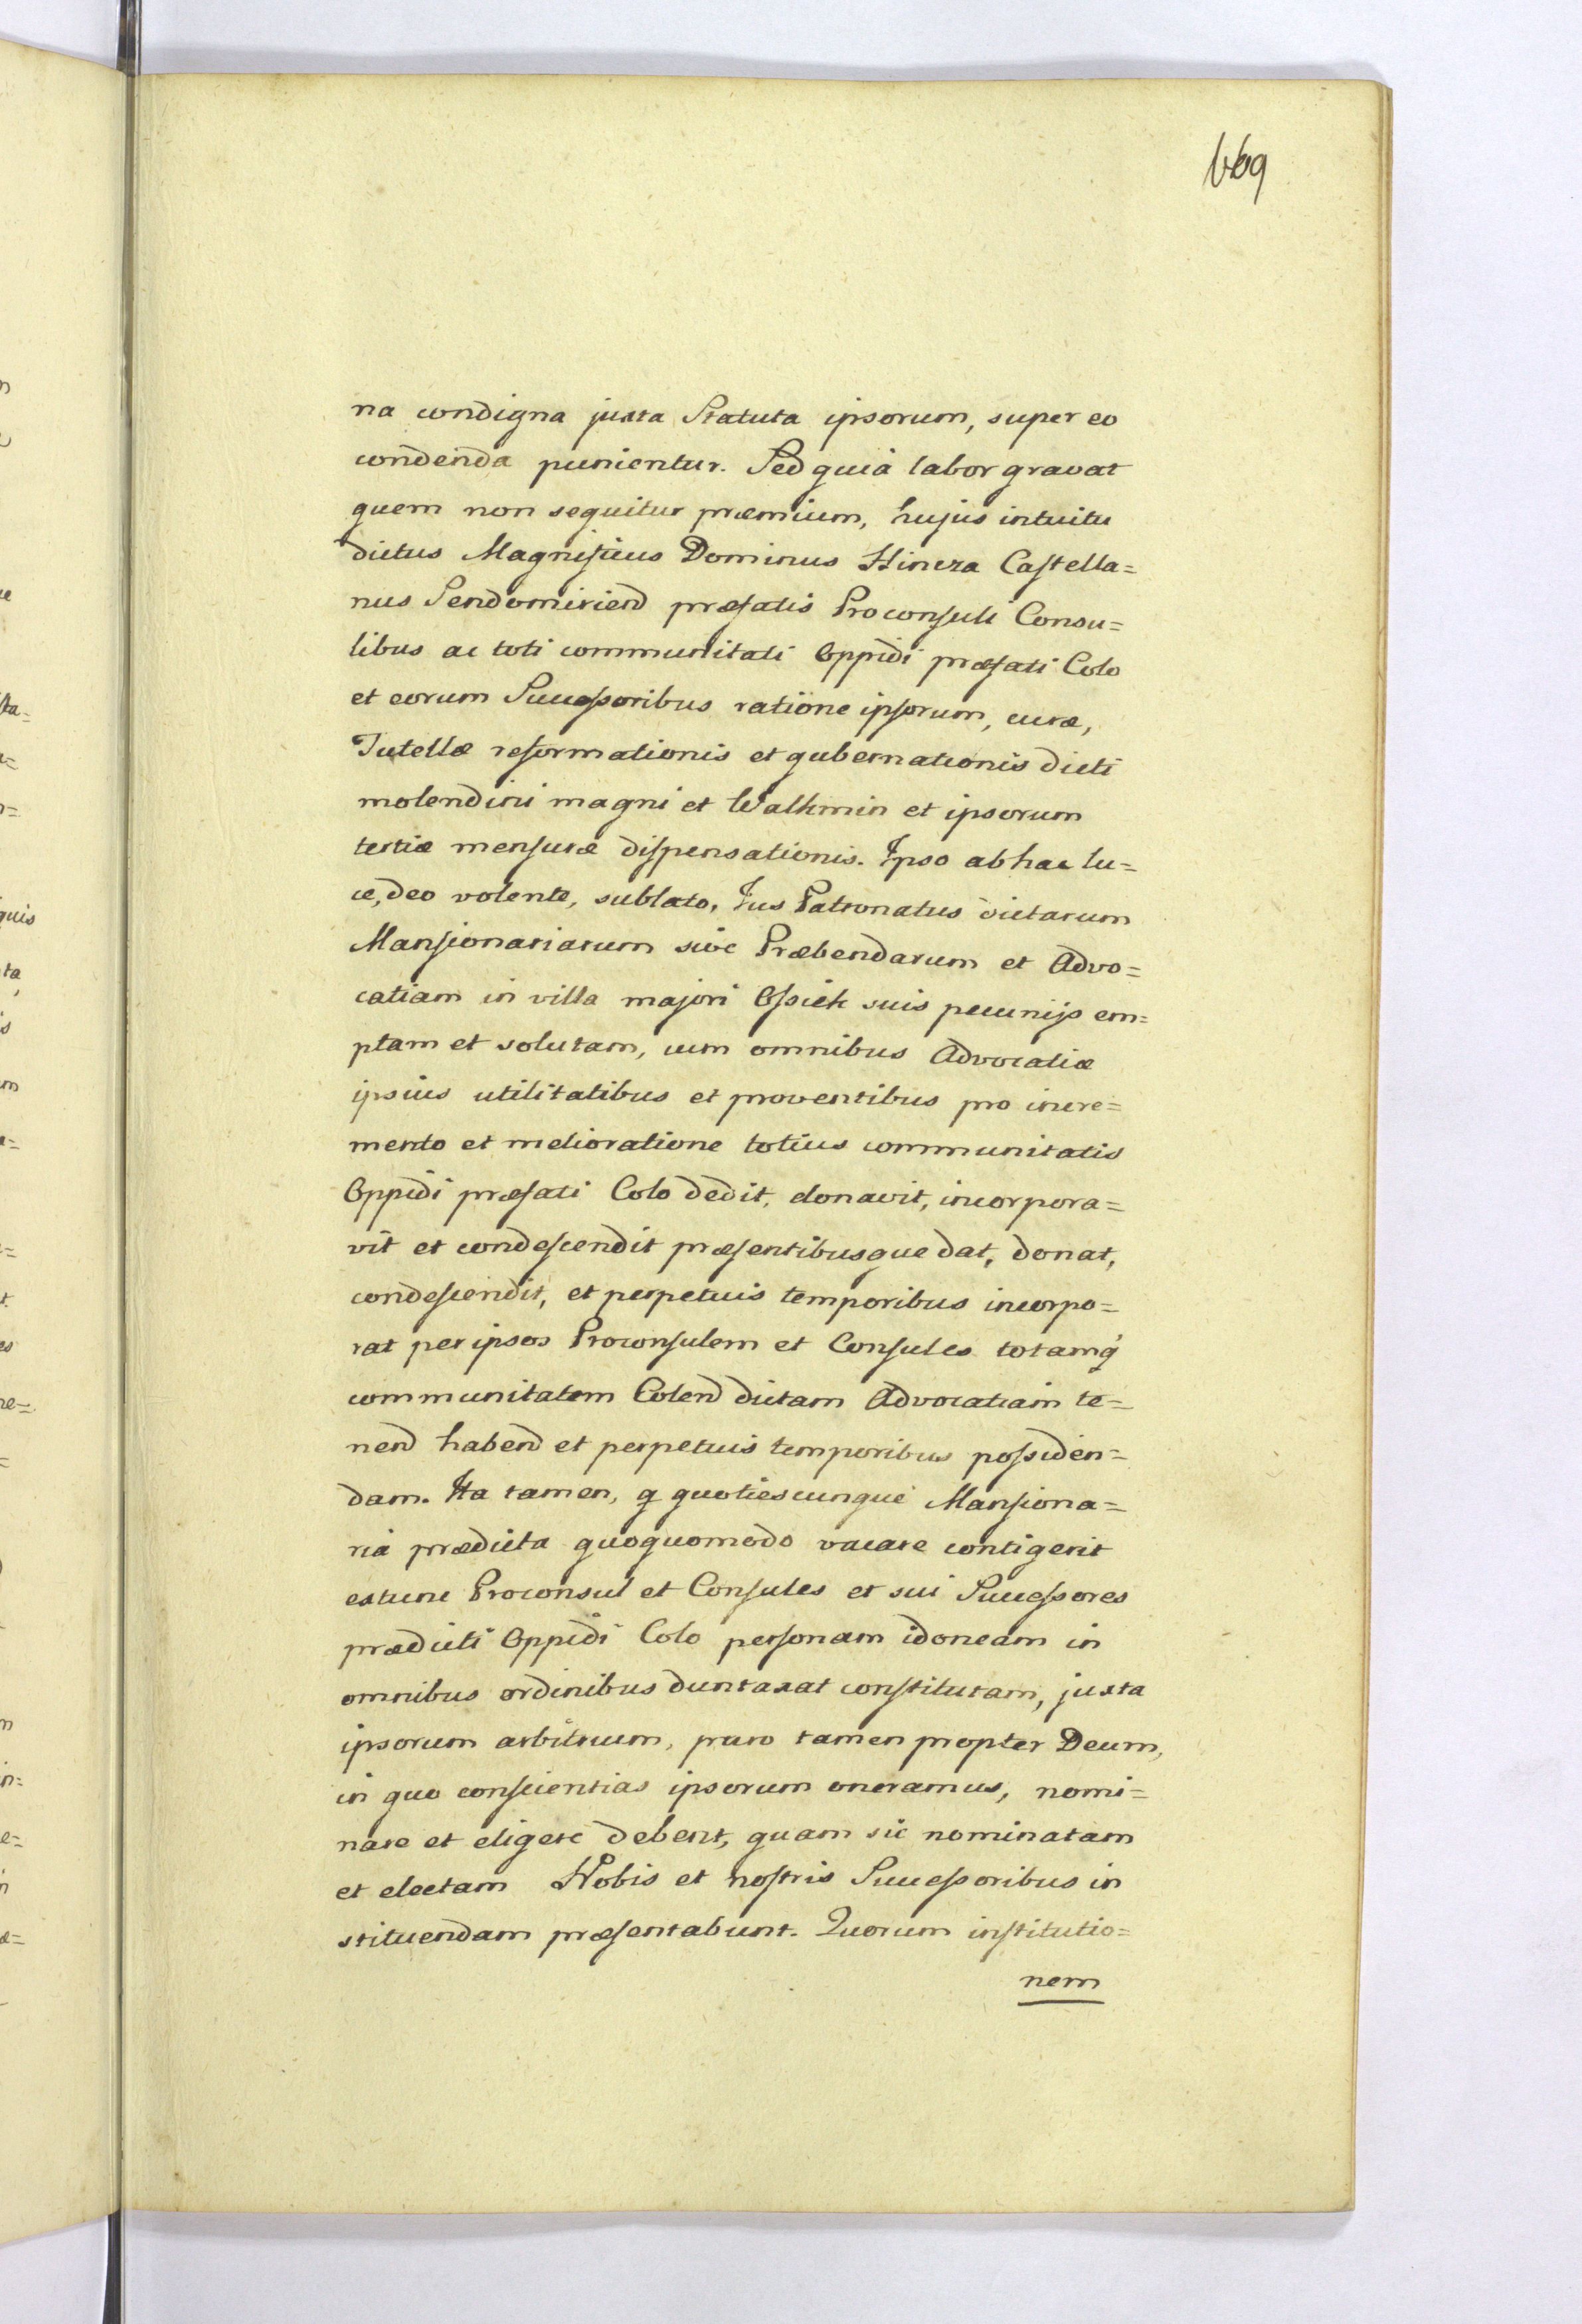 669
na condigna juxta Statuta ipsorum, super eo
condenda punientur. Sed quia labor gravat
quem non sequitur præmium, hujus intuitu
dictus Magnificus Dominus Hincza Castella=
nus Sendomiriend præfatis Proconsuli Consu=
libus ac toti communitati Oppidi præfati Colo
et eorum Successoribus ratione ipsorum, curæ,
Tutellæ reformationis et gubernationis dicti
molendini magni et Walkmin et ipsorum
tertiæ mensuræ dispensationis. Ipso ab hac lu=
ce, deo volente, sublato, Jus Patronatus dictarum
Mansionariarum sive Præbendarum et Advo=
catiam in villa majori Ossiek suis pecunijs em=
ptam et solutam, cum omnibus Advocatiæ
ipsius utilitatibus et proventibus pro incre=
mento et melioratione totius communitatis
Oppidi præfati Colo dedit, donavit, incorpora=
vit et condescendit præsentibusque dat, donat,
condescendit, et perpetuis temporibus incorpo=
rat per ipsos Proconsulem et Consules totamq̃
communitatem Colend dictam Advocatiam te=
nend habend et perpetuis temporibus possiden=
dam. Ita tamen, q quotiescunque Mansiona=
ria prædicta quoquomodo vacare contigerit
extunc Proconsul et Consules et sui Successores
prædicti Oppidi Colo personam idoneam in
omnibus ordinibus duntaxat constitutam, juxta
ipsorum arbitrium, puro tamen propter Deum,
in quo conscientias ipsorum oneramus, nomi=
nare et eligere debent, quam sic nominatam
et electam Nobis et nostris Successoribus in
stituendam præsentabunt. Quorum institutio=
nem